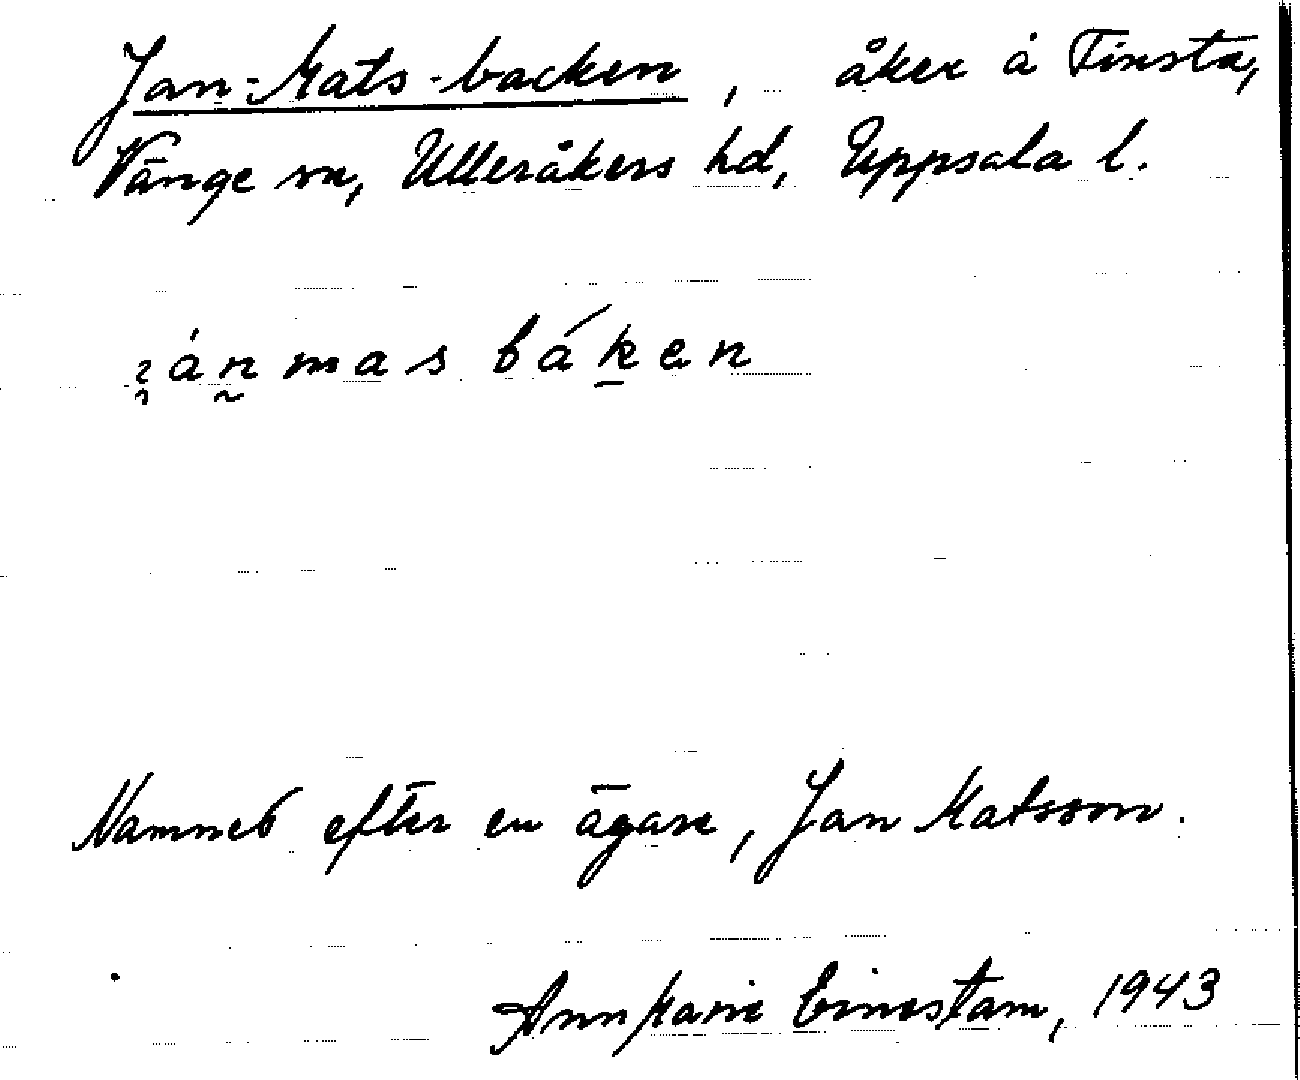 Jan-Mats-backen, åker å Finsta,
Vänge sn, Ulleråkers hd, Uppsala l.
Namnet efter en ägare, Jan Matsson.
Ann Marie Einestam, 1943